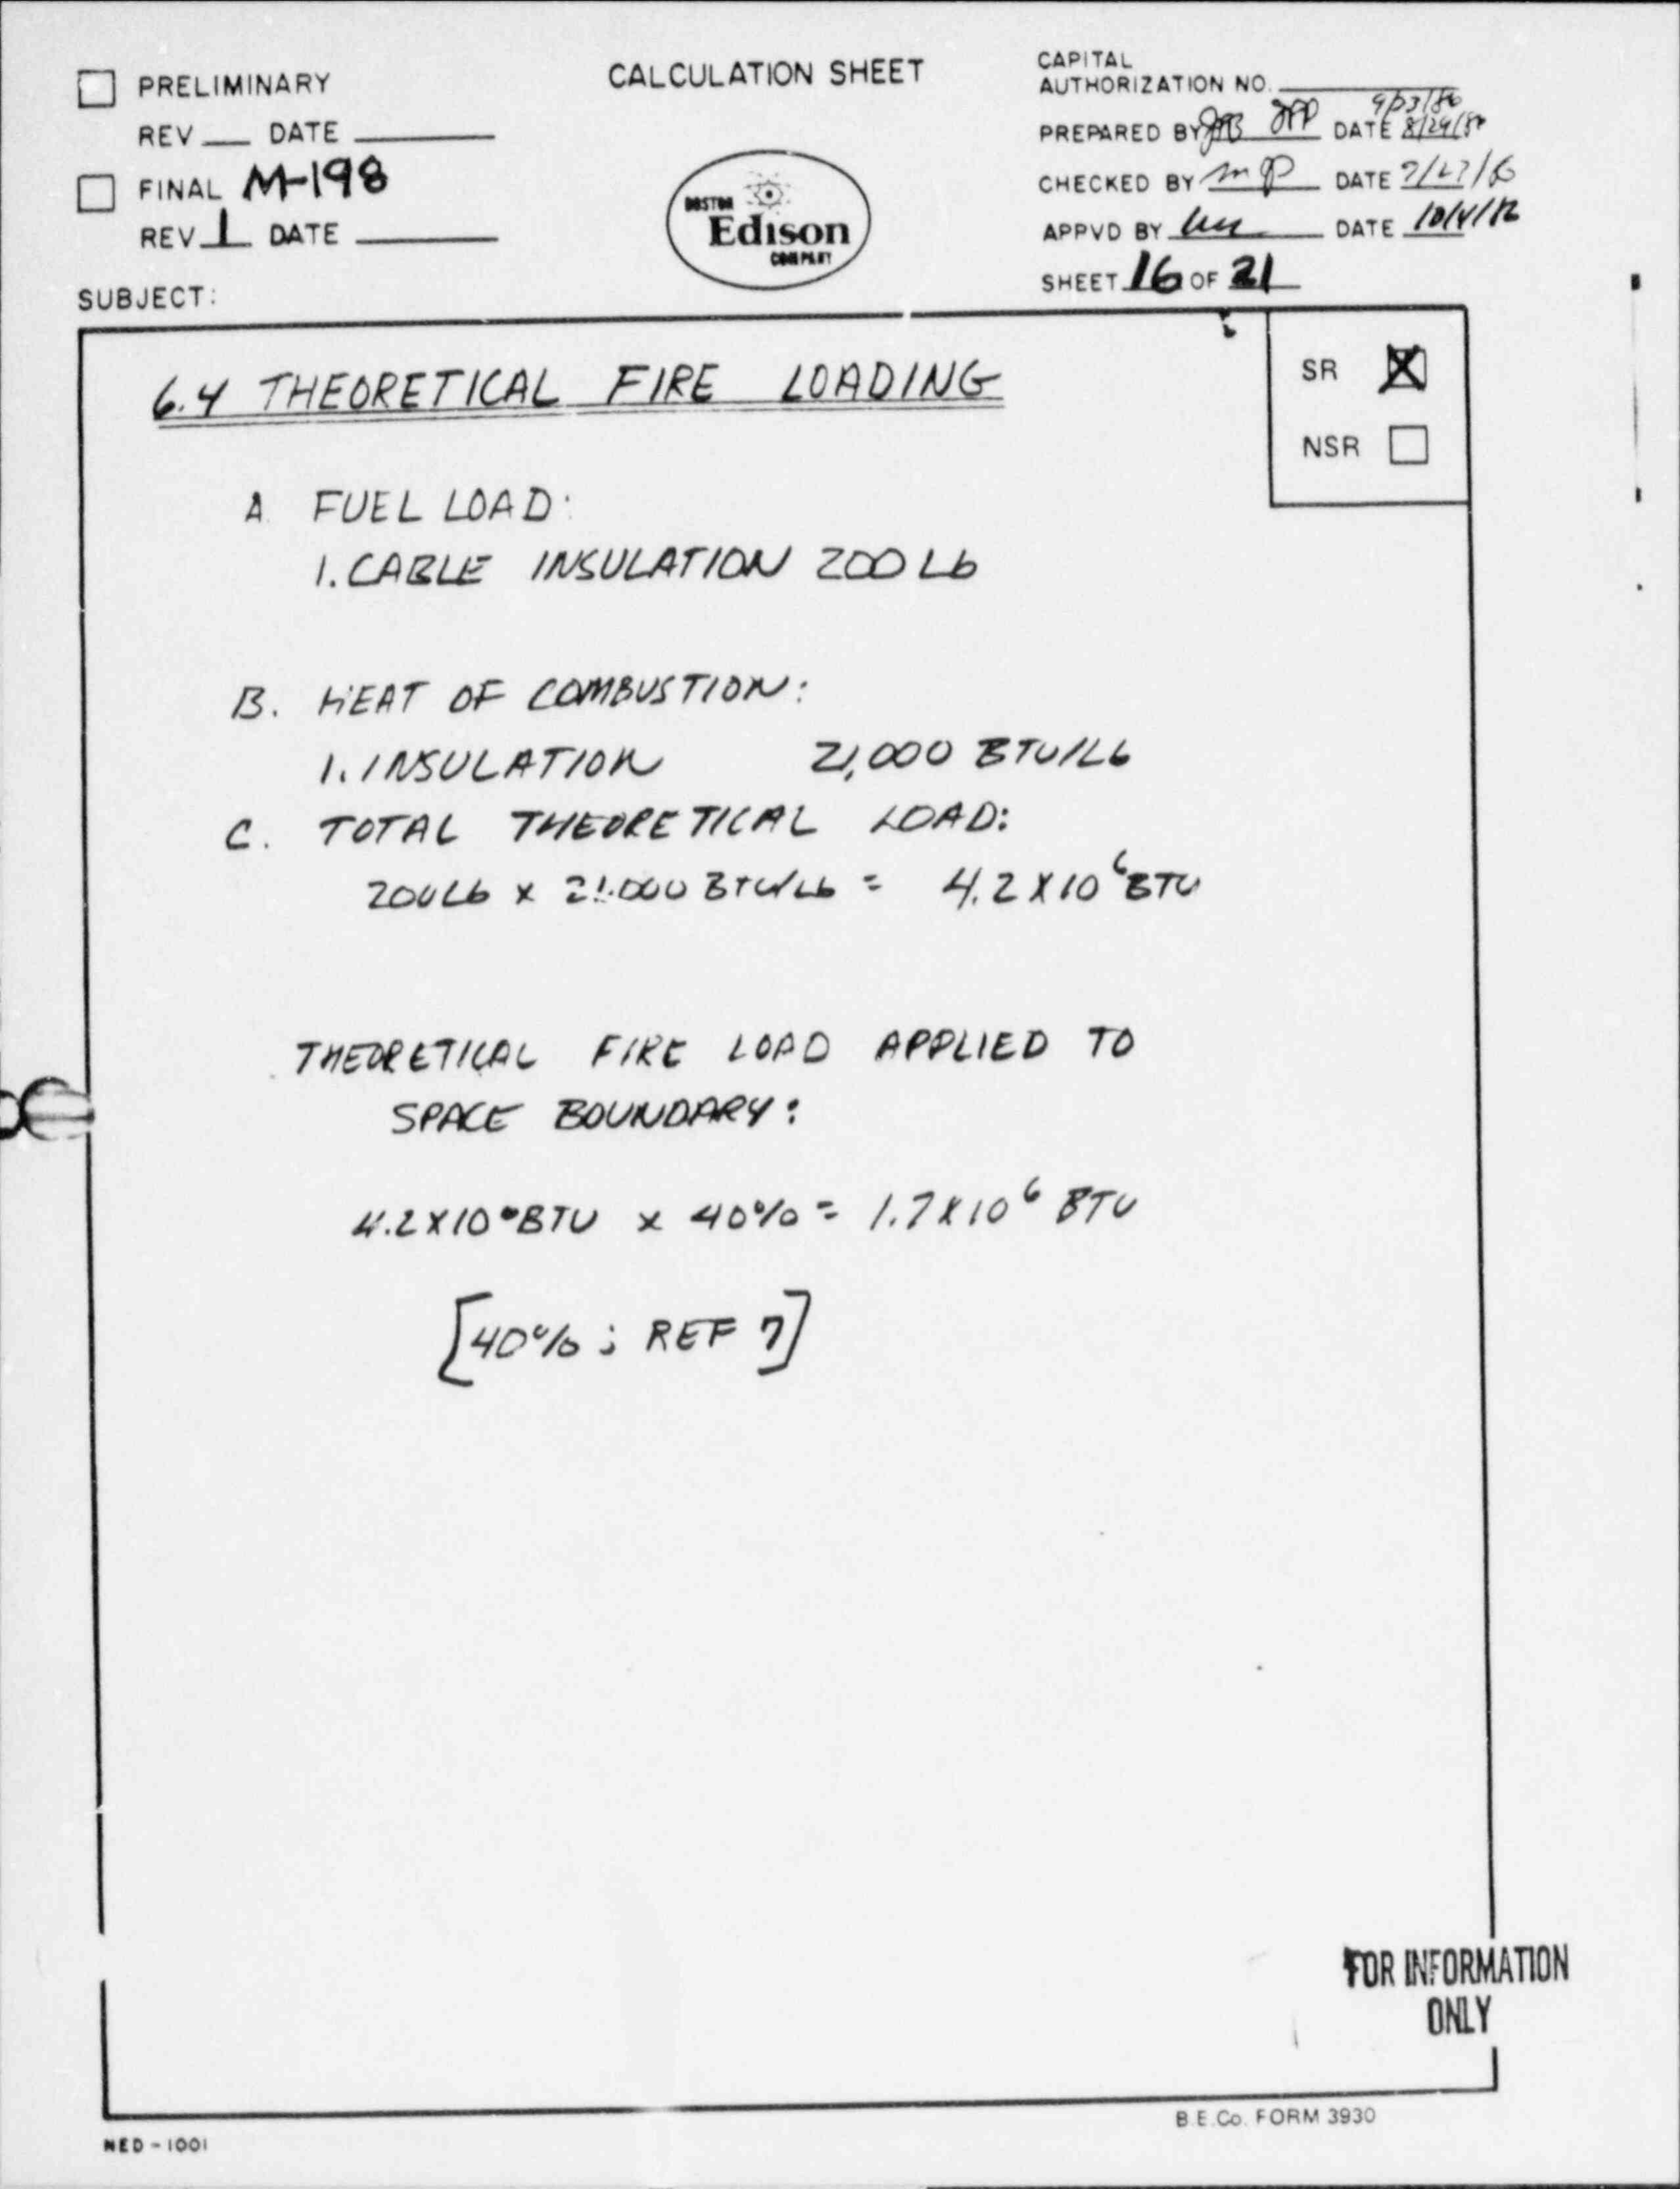 PRELIMINARY
REV DATE
FINAL M-198
REV 1 DATE
SUBJECT:
CALCULATION SHEET
BOSTON
Edison
COMPANY
CAPITAL
AUTHORIZATION NO.
9/23/86
PREPARED BY JPP DATE 8/29/86
CHECKED BY DATE
APPVD BY DATE
SHEET 16 OF 21
SR X
NSR
6.4 THEORETICAL FIRE LOADING
A. FUEL LOAD:
1. CABLE INSULATION 200 Lb
B. HEAT OF COMBUSTION:
1. INSULATION 21,000 BTU/Lb
C. TOTAL THEORETICAL LOAD:
200Lb x 21,000 BTU/Lb = 4.2 X 10⁶ BTU
THEORETICAL FIRE LOAD APPLIED TO
SPACE BOUNDARY:
4.2 X 10⁶ BTU x 40% = 1.7 X 10⁶ BTU
[40% ; REF 7]
FOR INFORMATION
ONLY
B.E.Co. FORM 3930
NED-1001